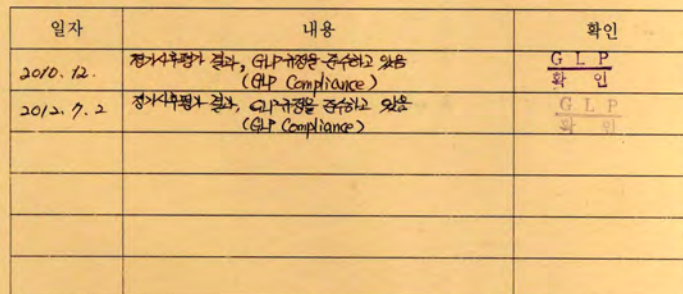 일자 내용 확인
2010. 12. 정기사후평가 결과, GLP규정을 준수하고 있음 G L P
(GLP Compliance) 확 인
2012. 7. 2 정기사후평가 결과, GLP규정을 준수하고 있음 G L P
(GLP Compliance) 확 인